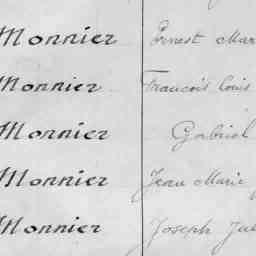 Monnier Ernest Mar
Monnier Francois Louis
Monnier Gabriel
Monnier Jean Marie
Monnier Joseph Jul